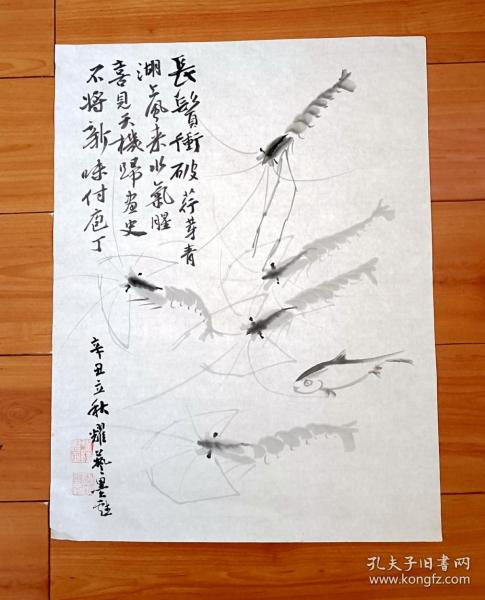 長鬚衝破荇芽青
湖上風來水氣腥
喜見天機歸畫史
不將新味付庖丁
辛丑立秋耀藝墨戲
孔夫子旧书网
www.kongfz.com